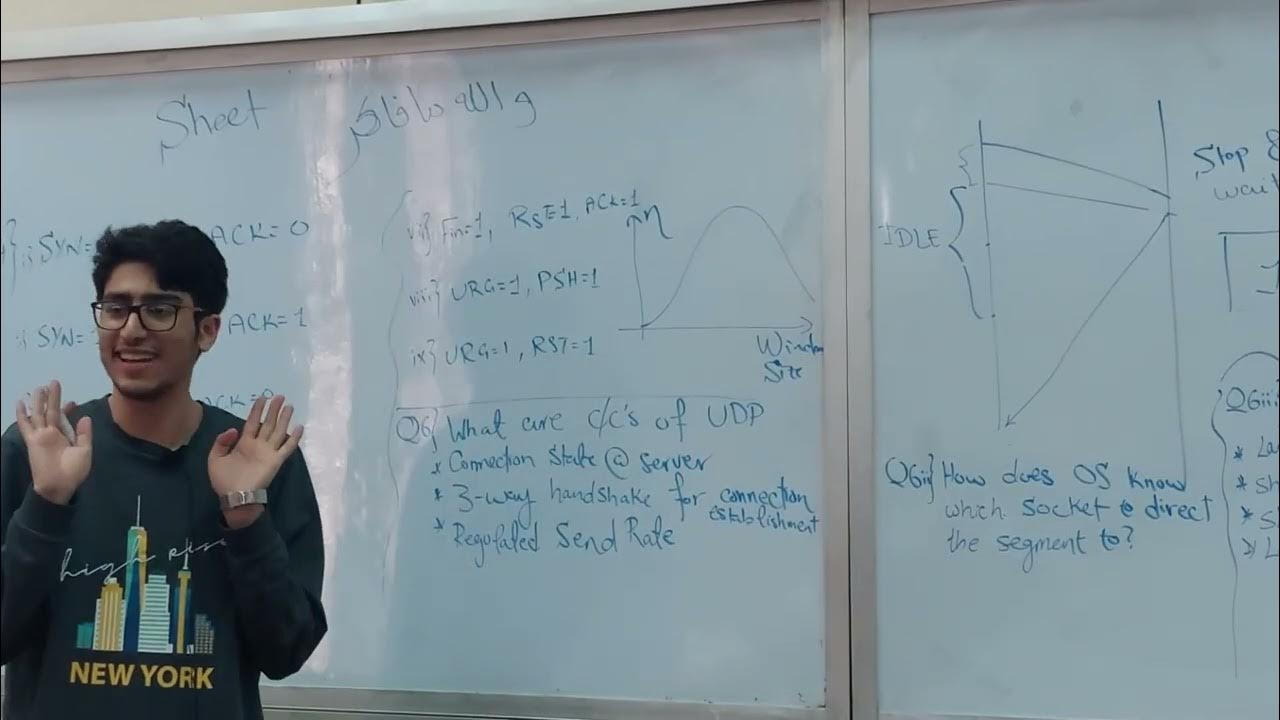 Sheet والله ما فاكر
i} SYN= ACK=0
SYN= ACK=1
ACK=0
vii} Fin=1, RST=1, ACK=1
viii} URG=1, PSH=1
ix} URG=1, RST=1
η
Window
Size
Q6} What are c/c's of UDP
* Connection state @ server
* 3-way handshake for connection
establishment
* Regulated Send Rate
IDLE
Stop &
wait
Q6ii} How does OS know
which socket to direct
the segment to?
Q6iii
* La
* Sh
* S
* L
high rise
NEW YORK